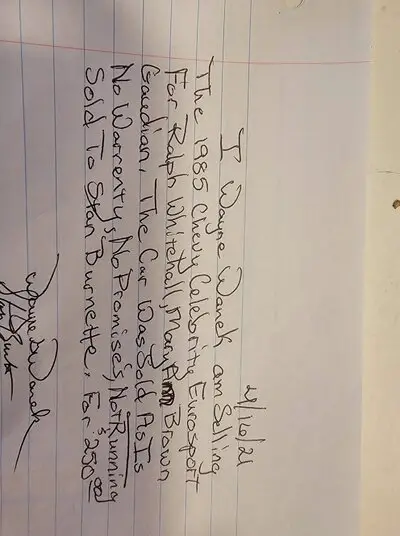 4/16/21
I Wayne Wanek am Selling
The 1985 Chevy Celebrity Eurosport
For Ralph Whitehall, Mary Ann Brown
Gaudian. The Car Was Sold As Is
No Warrenty's, No Promises, Not Running
Sold To Stan Burnette, For $250.00
Wayne Wanek